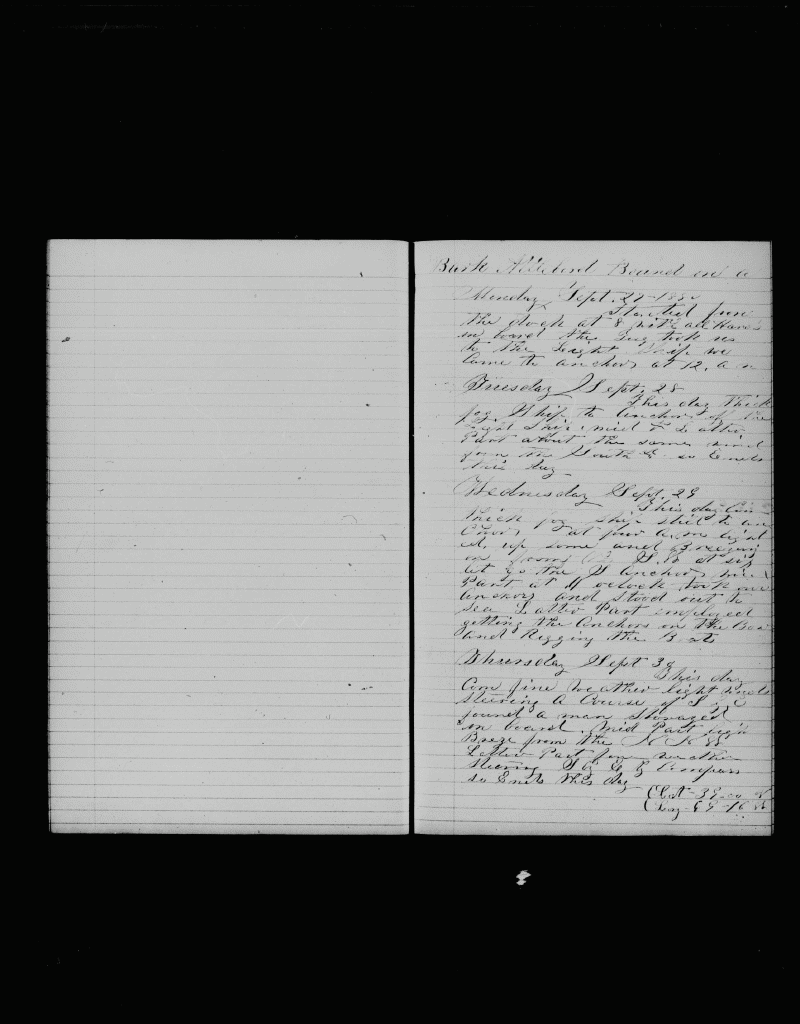 Bark Bound on a
Monday Sept. 27 - 1880
Started from
the dock at 8 with all Hands
on board the Tug took us
to the Light Ship we
Came to anchor at 12. a m
Tuesday Sept. 28
This day thick
fog. Ship to Anchor of the
Light Ship mid &. Latter
Part about the same wind
from the South E. so Ends
this day
Wednesday Sept. 29
This day Com
thick fog ship still to an
Chor at four a.m light
ed, up some and Breezing
on from at six
let go the anchor mid
Part at 11 oclock took our
anchors and stood out to
sea Latter Part employed
getting the anchors on the Bow
and Rigging the Boats
Thursday Sept 30
This day
Com fine weather light winds
steering a Course of
found a man Stowaged
on board. Mid Part
Breze from the
Latter Part fine weather
steering by Compass
so Ends this day
Lat - 39
Long - 69 - 16